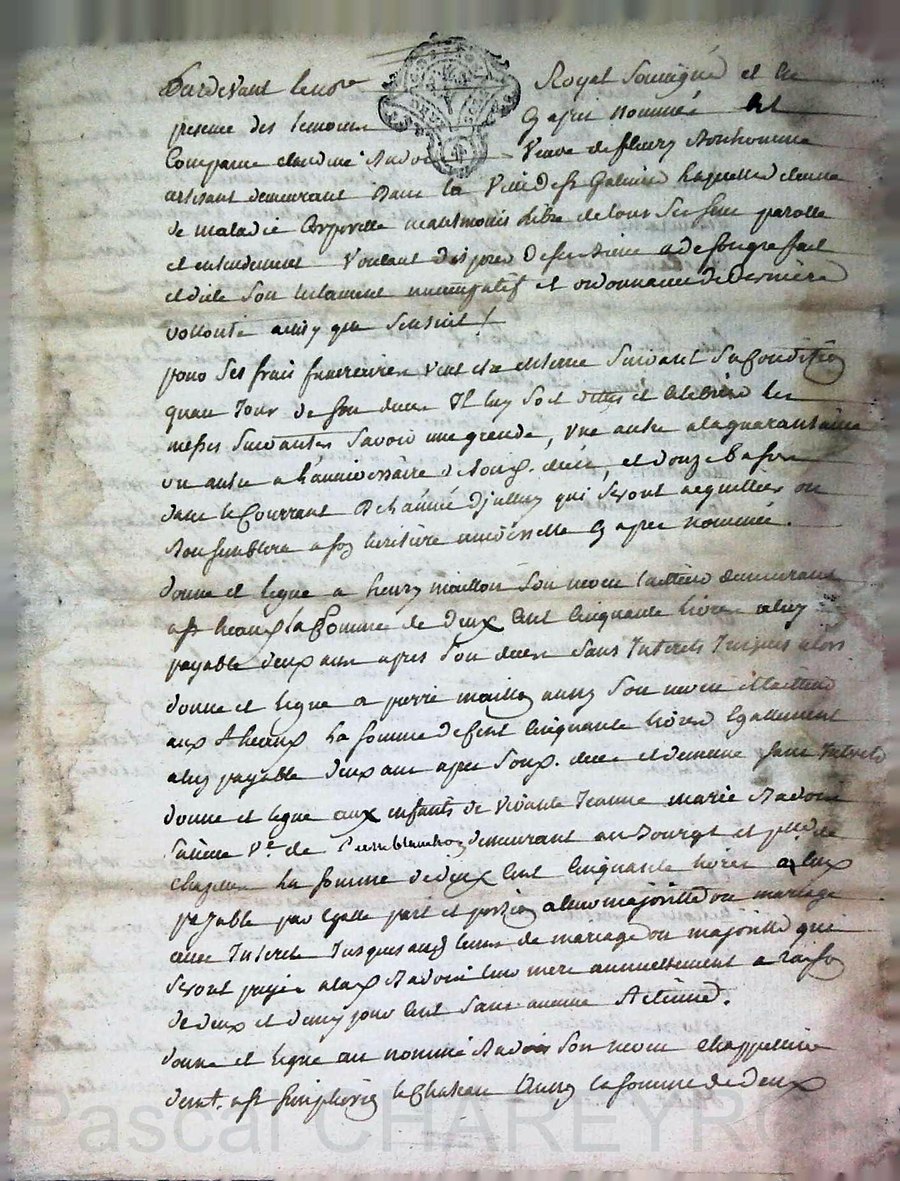 Pardevant le no.re Royal Soussigné et en
presence des temoins Cy apres nommés est
Comparue claudine Badoi Veuve de fleury Bonhomme
artisant demeurant Dans la Ville de St Galmier laquelle detenue
de maladie Corporelle neantmoins libre de tous ses sens parolle
et entendement Voulant disposer de ses Biens a de son gre fait
et dicté Son testament nuncupatif et ordonnance de derniere
vollonté ainsy que Sensuit /
pour Ses frais funeraires veut etre enterrée Suivant Sa Condition
quau Jour de son deces Il luy soit dittes et Celebrées les
messes Suivantes Savoir une grande, une autre a la quarantaine
un autre a l'anniversaire de sond. decés, et douze Basses
dans le Courrant de l'année d'jcelluy qui seront acquittées ou
Bon semblera a son heritiere universelle Cy apres nommée.
donne et legue a henry maillon Son neveu laitteur demeurant
a St heaux la Somme de deux Cent Cinquante livres a luy
payable deux ans apres Son deces Sans Interets Jusques alors
donne et legue a pierre maillon aussy Son neveu
aux St heaux la somme de Cent Cinquante livres Egallement
a luy payable deux ans apres Sond. deces et de meme sans Interets
donne et legue aux enfants de vivante Jeanne marie Badoi
Sa niece Ve. de Pierre blanchon demurant au Bourgt et p.sse de
chazelles la somme de deux Cent Cinquante livres a Eux
payable par Egalle part et portion a leur majoritté ou mariage
avec Interet Jusques aud temps de mariage ou majoritté qui
Seront payés a lad Badoi leur mere annuellement a raison
de deux et demy pour Cent Sans aucune retenue.
donne et legue au nommé Badoi Son neveu Chappellier
demt. a St Simphorien le Chateau aussy la somme de deux
Pascal CHAREYRON